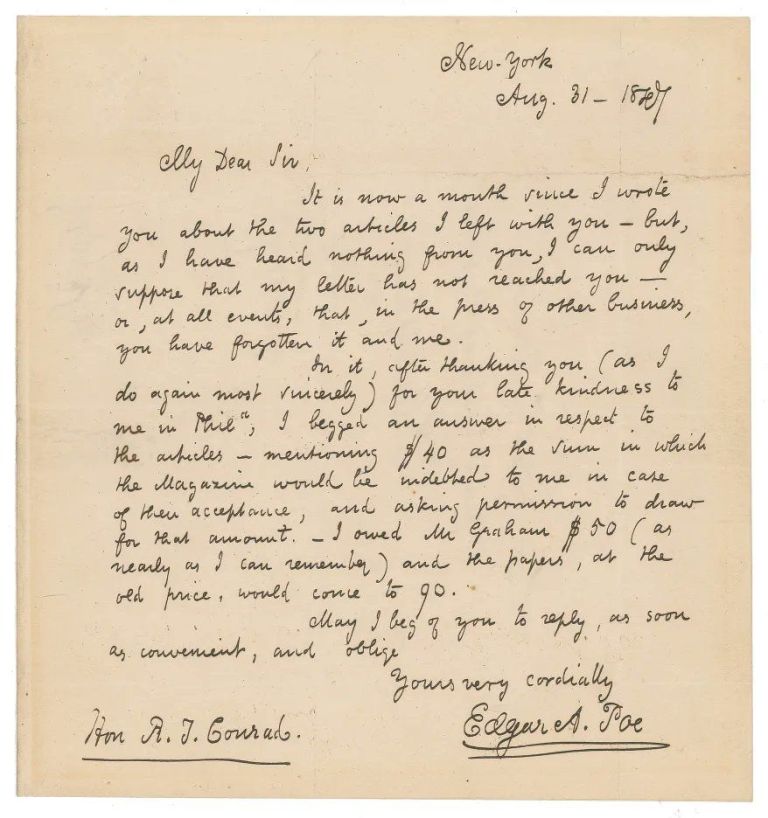 New-York
Aug. 31 – 1847
My Dear Sir,
It is now a month since I wrote
you about the two articles I left with you – but,
as I have heard nothing from you, I can only
suppose that my letter has not reached you —
or, at all events, that, in the press of other business,
you have forgotten it and me.
In it, after thanking you (as I
do again most sincerely) for your late kindness to
me in Philª, I begged an answer in respect to
the articles – mentioning $40 as the sum in which
the Magazine would be indebted to me in case
of their acceptance, and asking permission to draw
for that amount. – I owed Mr Graham $50 (as
nearly as I can remember) and the papers, at the
old price, would come to 90.
May I beg of you to reply, as soon
as convenient, and oblige
Yours very cordially
Edgar A. Poe
Hon R. T. Conrad.